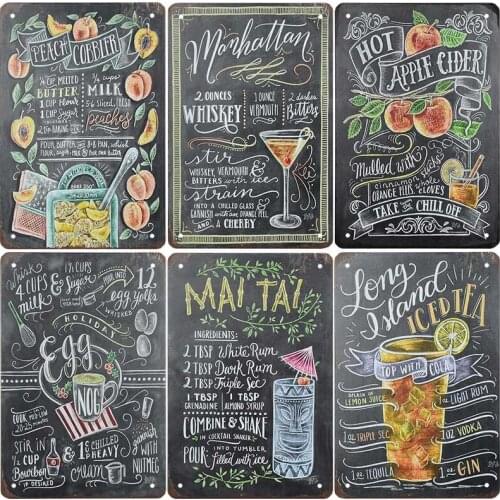 PEACH COBBLER
1/4 CUP MELTED
BUTTER
1 CUP flour
1 CUP Sugar
2 tsp BAKING
3/4 cups
MILK
5-6 Sliced, fresh
peaches
POUR BUTTER
flour, sugar, milk
BAKE 350°
Manhattan
2 OUNCES
WHISKEY
1 OUNCE
VERMOUTH
2 dashes
Bitters
stir
WHISKEY, VERMOUTH &
BITTERS with ice
strain
INTO A CHILLED GLASS &
GARNISH with an ORANGE PEEL
AND A CHERRY
HOT
APPLE CIDER
Mulled with
cinnamon
ORANGE PEEL & CLOVES
TAKE THE CHILL OFF
Whisk
4 CUPS
milk
1 1/3 CUPS
& Sugar
POUR INTO
12
egg yolks
WHISKED
HOLIDAY
Egg
NOG
COOK MED-LOW
20-25 minutes
STIR IN
1/2 CUP
Bourbon
IF DESIRED
&
1 1/2 CHILLED
& HEAVY
cream
garnish
WITH
NUTMEG
MAI TAI
INGREDIENTS:
2 TBSP White Rum
2 TBSP Dark Rum
2 TBSP Triple Sec
1 TBSP
GRENADINE
1 TBSP
ALMOND SYRUP
COMBINE & SHAKE
IN COCKTAIL SHAKER
POUR
INTO TUMBLER
filled with ice
Long
Island
ICED TEA
TOP WITH COLA
SPLASH OF
LEMON JUICE
1 oz LIGHT RUM
1 oz TRIPLE SEC
1 oz VODKA
1 oz TEQUILA
1 oz GIN